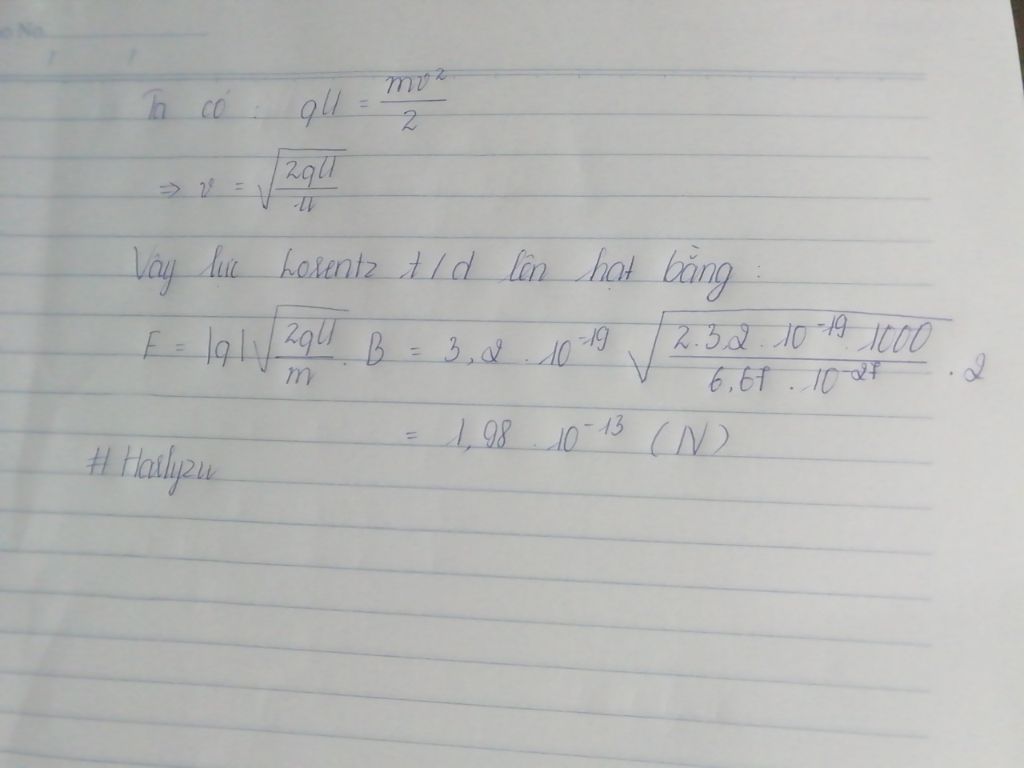 No.
Ta có : qU = mv²/2
⇒ v = √(2qU/u)
Vậy lực Lorentz t/d lên hạt bằng :
F = |q|√(2qU/m) . B = 3,2 . 10⁻¹⁹ √(2.3,2 . 10⁻¹⁹ . 1000 / 6,67 . 10⁻²⁷) . 2
= 1,98 . 10⁻¹³ (N)